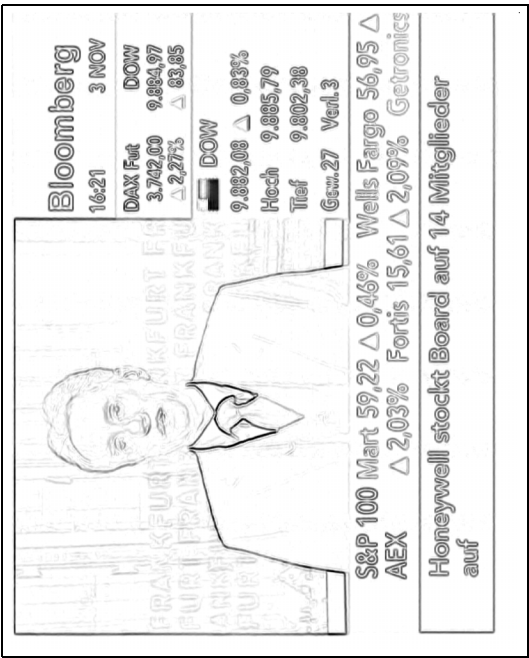 Bloomberg
16:21 3 NOV
DAX Fut DOW
3.742,00 9.884,97
△ 2,27% △ 83,85
DOW
9.882,08 △ 0,83%
Hoch 9.885,79
Tief 9.802,38
Gew.27 Verl.3
FRANKFUR NKFURT FR
FURT FRAN FRANKFU
ANKF RANK
FURT
S&P 100 Mart 59,22 △ 0,46% Wells Fargo 56,95 △
AEX △ 2,03% Fortis 15,61 △ 2,09% Getronics
Honeywell stockt Board auf 14 Mitglieder
auf